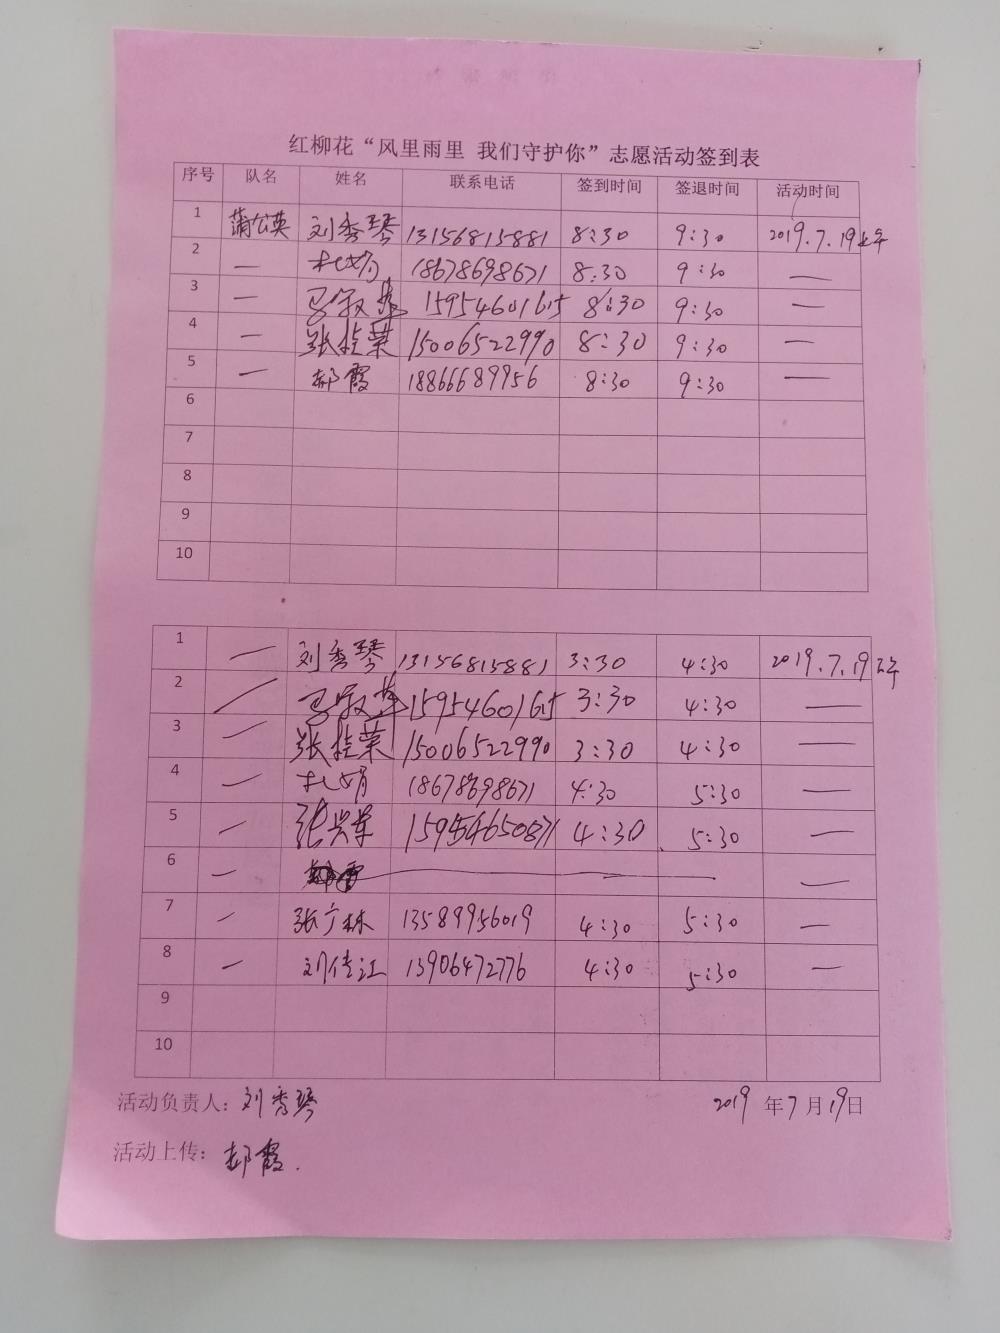 红柳花“风里雨里 我们守护你”志愿活动签到表
序号 队名 姓名 联系电话 签到时间 签退时间 活动时间
1 蒲公英 刘秀琴 13156815881 8:30 9:30 2019.7.19上午
2 — 杜娟 18678698671 8:30 9:30 —
3 — 马敏华 15954601615 8:30 9:30 —
4 — 张桂荣 15006522990 8:30 9:30 —
5 — 郝霞 18866689956 8:30 9:30 —
6
7
8
9
10
1 — 刘秀琴 13156815881 3:30 4:30 2019.7.19下午
2 — 马敏华 15954601615 3:30 4:30 —
3 — 张桂荣 15006522990 3:30 4:30 —
4 — 杜娟 18678698671 4:30 5:30 —
5 — 张兴华 15954650871 4:30 5:30 —
6 — —
7 — 张广林 13589956019 4:30 5:30 —
8 — 刘佳江 13906472776 4:30 5:30 —
9
10
活动负责人：刘秀琴 2019 年 7 月 19日
活动上传：郝霞.